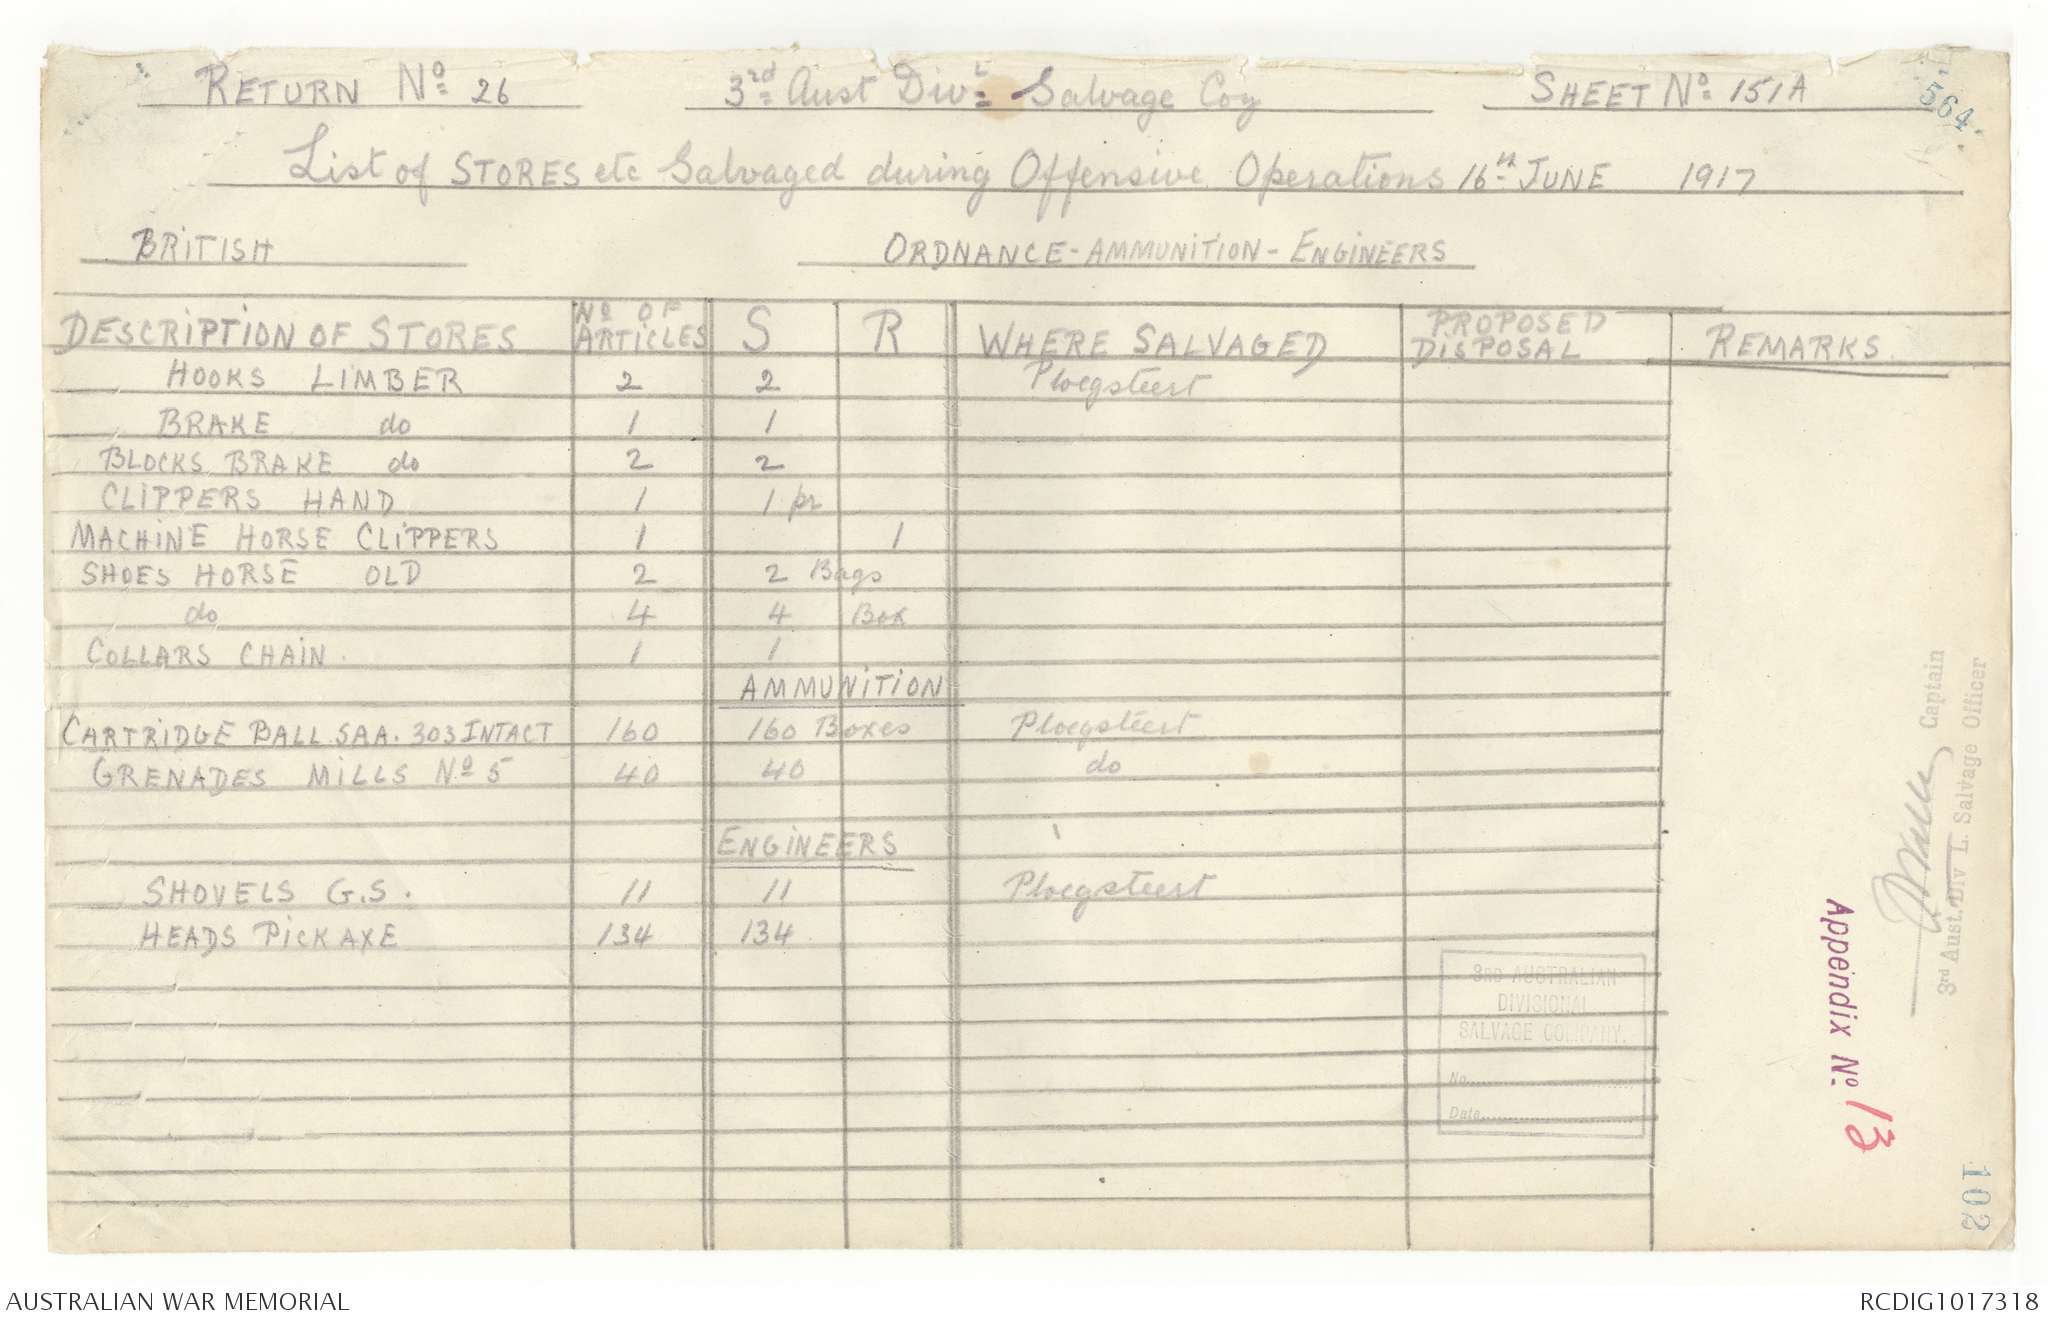 RETURN No 26 3rd Aust Divl Salvage Coy SHEET No 151A
564
List of STORES etc Salvaged during Offensive Operations 16th JUNE 1917
BRITISH ORDNANCE - AMMUNITION - ENGINEERS
DESCRIPTION OF STORES No OF ARTICLES S R WHERE SALVAGED PROPOSED DISPOSAL REMARKS
HOOKS LIMBER 2 2 Ploegsteert
BRAKE do 1 1
BLOCKS BRAKE do 2 2
CLIPPERS HAND 1 1 pr
MACHINE HORSE CLIPPERS 1 1
SHOES HORSE OLD 2 2 Bags
do 4 4 Box
COLLARS CHAIN. 1 1
AMMUNITION
CARTRIDGE BALL SAA. 303 INTACT 160 160 Boxes Ploegsteert
GRENADES MILLS No 5 40 40 do
ENGINEERS
SHOVELS G.S. 11 11 Ploegsteert
HEADS PICK AXE 134 134
3RD AUSTRALIAN
DIVISIONAL
SALVAGE COMPANY.
No.
Date
Captain
3rd Aust. Div L. Salvage Officer
Appendix No. 13
102
AUSTRALIAN WAR MEMORIAL RCDIG1017318